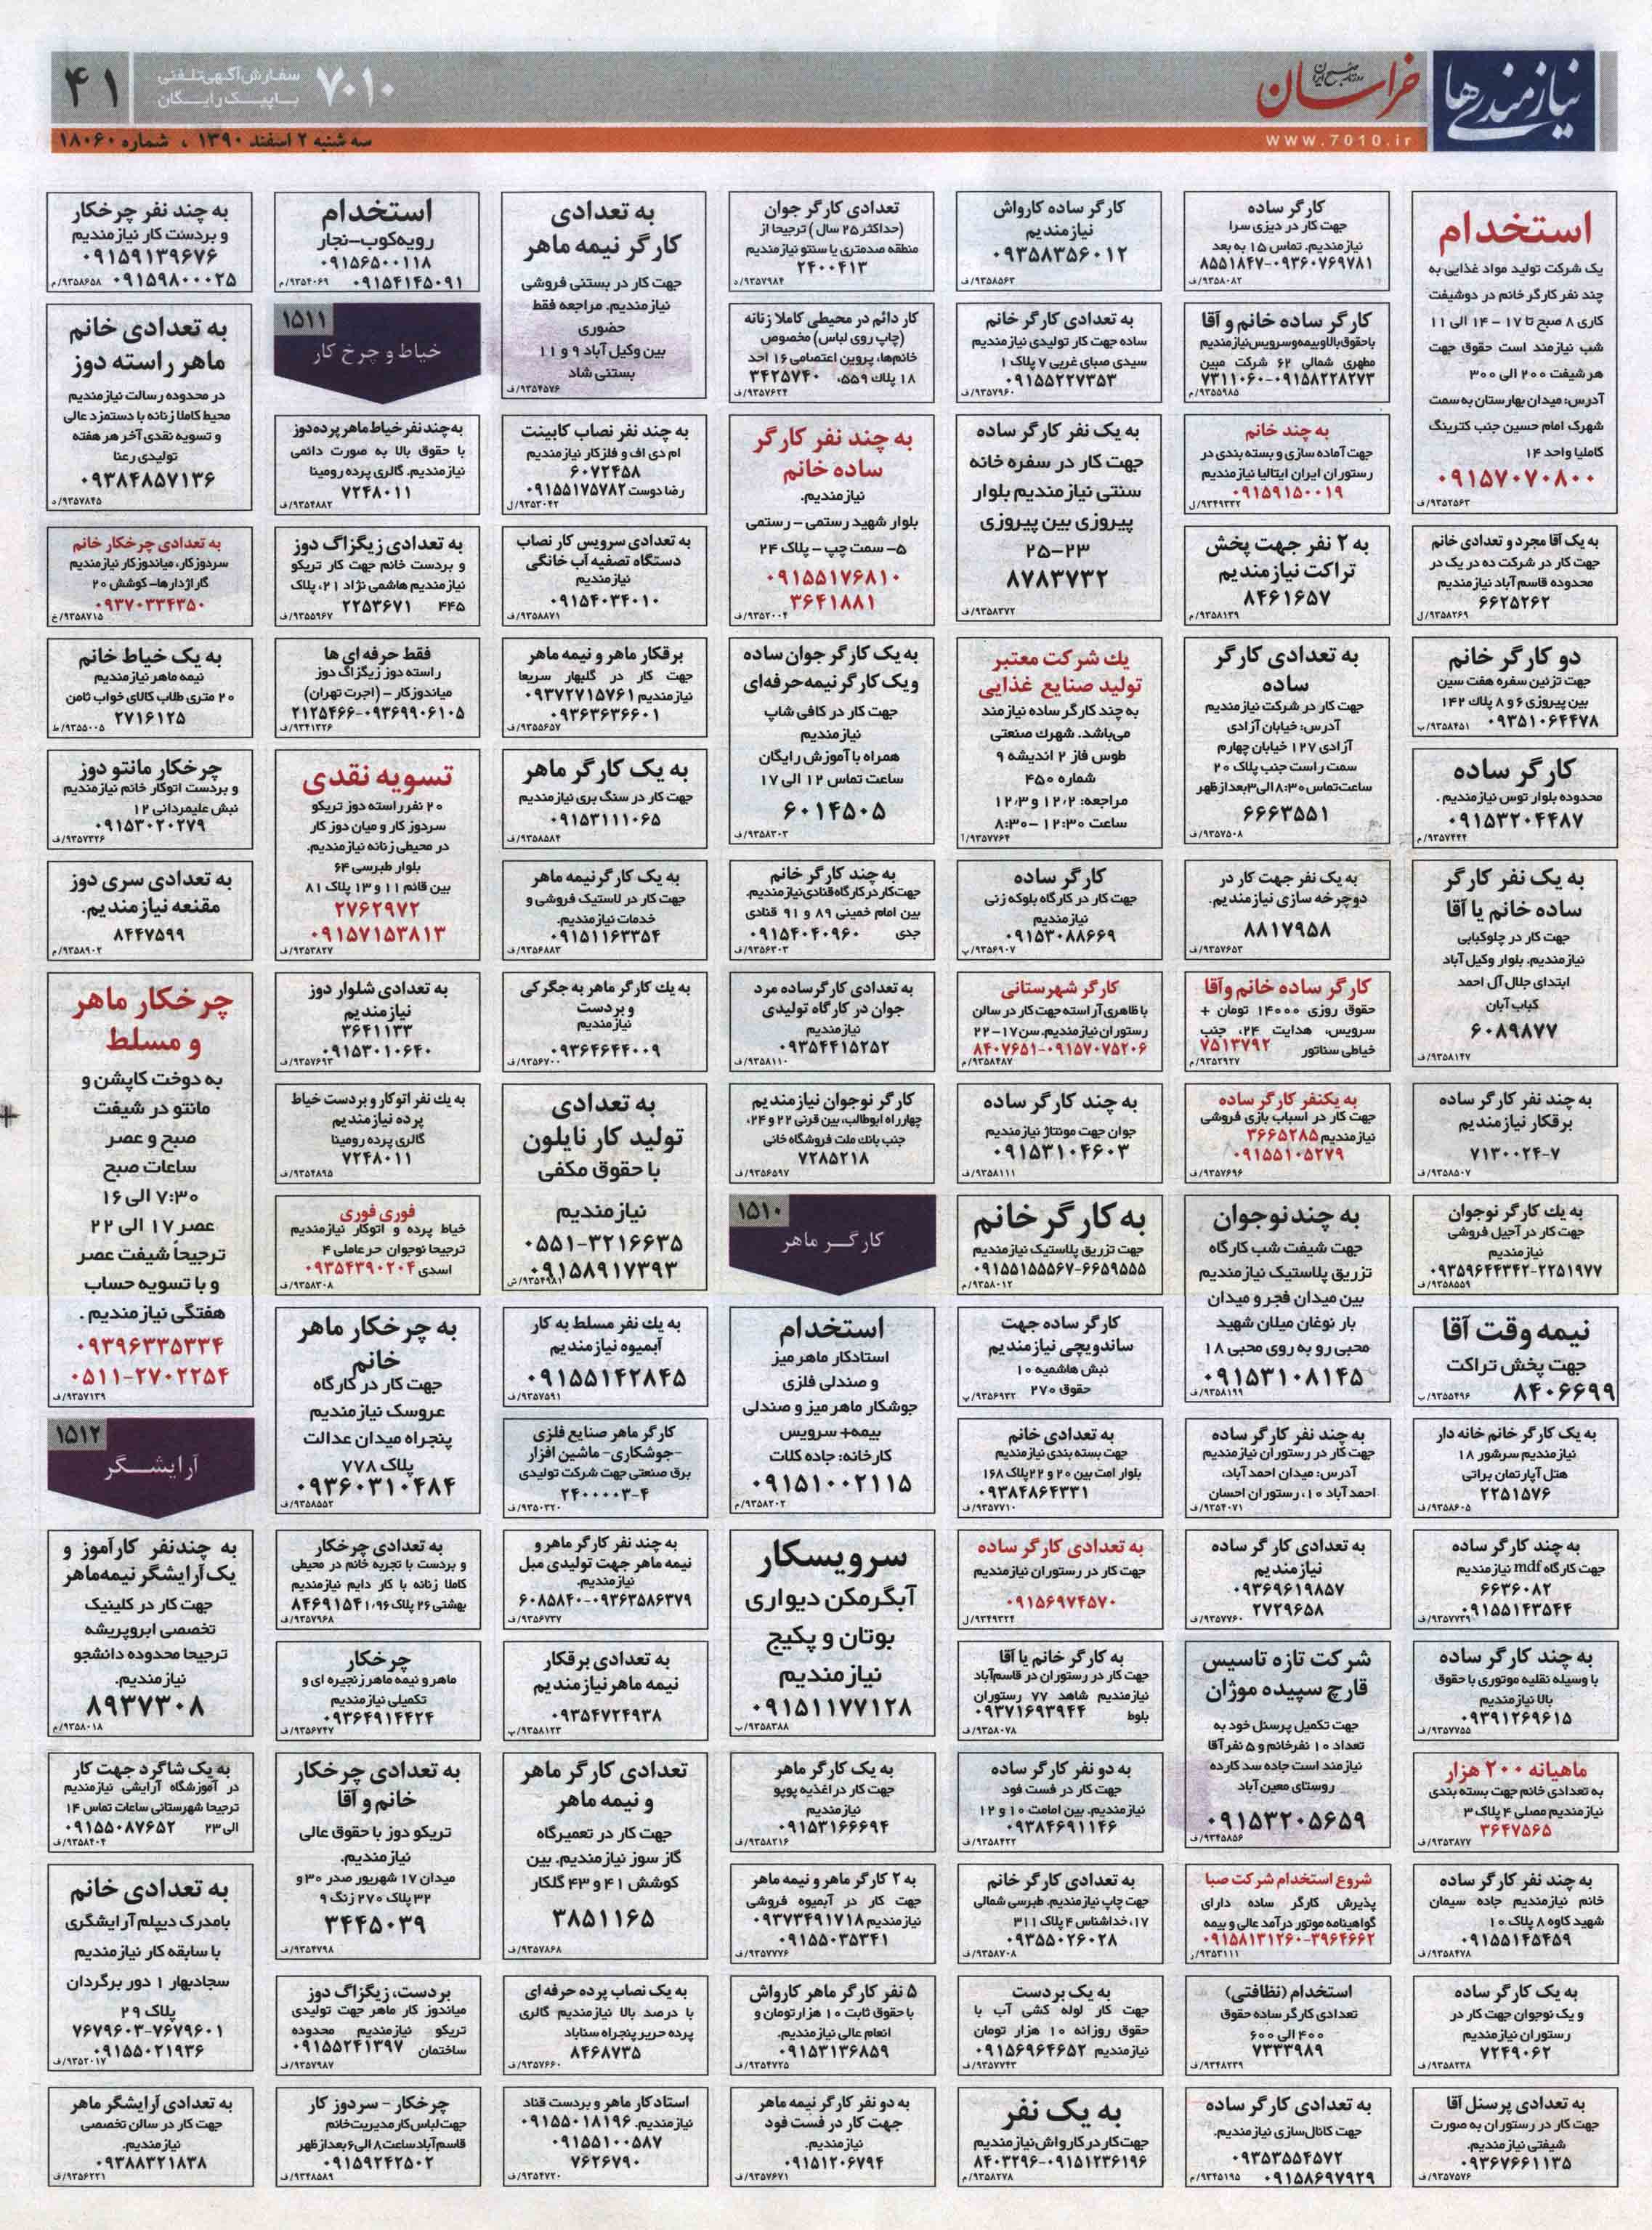 نیازمندیها
خراسان
روزنامه صبح ایران
www.7010.ir
۷۰۱۰
سفارش آگهی تلفنی
با پیک رایگان
۴۱
سه شنبه ۲ اسفند ۱۳۹۰ ، شماره ۱۸۰۶۰
استخدام
یک شرکت تولید مواد غذایی به
چند نفر کارگر خانم در دوشیفت
کاری ۸ صبح تا ۱۷ - ۱۴ الی ۱۱
شب نیازمند است حقوق جهت
هر شیفت ۲۰۰ الی ۳۰۰
آدرس: میدان بهارستان به سمت
شهرک امام حسین جنب کترینگ
کاملیا واحد ۱۴
۰۹۱۵۷۰۷۰۸۰۰
به یک آقا مجرد و تعدادی خانم
جهت کار در شرکت ده در یک در
محدوده قاسم آباد نیازمندیم
۶۶۲۵۲۶۲
دو کارگر خانم
جهت تزئین سفره هفت سین
بین پیروزی ۶ و ۸ پلاك ۱۴۲
۰۹۳۵۱۰۶۴۴۷۸
کارگر ساده
محدوده بلوار توس نیازمندیم.
۰۹۱۵۳۲۰۴۴۸۷
به یک نفر کارگر
ساده خانم یا آقا
جهت کار در چلوکبابی
نیازمندیم. بلوار وکیل آباد
ابتدای جلال آل احمد
کباب آبان
۶۰۸۹۸۷۷
به چند نفر کارگر ساده
برقکار نیازمندیم
۷۱۳۰۰۲۴-۷
به یك کارگر نوجوان
جهت کار در آجیل فروشی
نیازمندیم
۰۹۳۵۹۶۴۴۳۴۲-۲۲۵۱۹۷۷
نیمه وقت آقا
جهت پخش تراکت
۸۴۰۶۶۹۹
به یک کارگر خانم خانه دار
نیازمندیم سرشور ۱۸
هتل آپارتمان براتی
۲۲۵۱۵۷۶
به چند کارگر ساده
جهت کارگاه mdf نیازمندیم
۶۶۳۶۰۸۲
۰۹۱۵۵۱۴۳۵۴۴
به چند کارگر ساده
با وسیله نقلیه موتوری با حقوق
بالا نیازمندیم
۰۹۳۹۱۲۶۹۶۱۵
ماهیانه ۲۰۰ هزار
به تعدادی خانم جهت بسته بندی
نیازمندیم مصلی ۴ پلاک ۳
۳۶۴۷۵۶۵
به چند نفر کارگر ساده
خانم نیازمندیم جاده سیمان
شهید کاوه ۸ پلاک ۱۰
۰۹۱۵۵۱۴۵۴۵۹
به یک کارگر ساده
و یک نوجوان جهت کار در
رستوران نیازمندیم
۷۲۴۹۰۶۲
به تعدادی پرسنل آقا
جهت کار در رستوران به صورت
شیفتی نیازمندیم.
۰۹۳۶۷۶۶۱۱۳۵
کارگر ساده
جهت کار در دیزی سرا
نیازمندیم. تماس ۱۵ به بعد
۸۵۵۱۸۴۷-۰۹۳۶۰۷۶۹۷۸۱
کارگر ساده خانم و آقا
باحقوق بالاوبیمه وسرویس نیازمندیم
مطهری شمالی ۶۲ شرکت مبین
۷۳۱۱۰۶۰-۰۹۱۵۸۲۲۸۲۷۳
به چند خانم
جهت آماده سازی و بسته بندی در
رستوران ایران ایتالیا نیازمندیم
۰۹۱۵۹۱۵۰۰۱۹
به ۲ نفر جهت پخش
تراکت نیازمندیم
۸۴۶۱۶۵۷
به تعدادی کارگر
ساده
جهت کار در شرکت نیازمندیم
آدرس: خیابان آزادی
آزادی ۱۲۷ خیابان چهارم
سمت راست جنب پلاک ۲۰
ساعت تماس ۸:۳۰الی۳بعدازظهر
۶۶۶۳۵۵۱
به یک نفر جهت کار در
دوچرخه سازی نیازمندیم.
۸۸۱۷۹۵۸
کارگر ساده خانم وآقا
حقوق روزی ۱۴۰۰۰ تومان +
سرویس، هدایت ۲۴، جنب
خیاطی سناتور ۷۵۱۳۷۹۲
به یکنفر کارگر ساده
جهت کار در اسباب بازی فروشی
نیازمندیم ۳۶۶۵۲۸۵
۰۹۱۵۵۱۰۵۲۷۹
به چند نوجوان
جهت شیفت شب کارگاه
تزریق پلاستیک نیازمندیم
بین میدان فجر و میدان
بار نوغان میلان شهید
محبی رو به روی محبی ۱۸
۰۹۱۵۳۱۰۸۱۴۵
به چند نفر کارگر ساده
جهت کار در رستوران نیازمندیم
آدرس: میدان احمد آباد،
احمد آباد ۱۰، رستوران احسان
به تعدادی کارگر ساده
نیازمندیم
۰۹۳۶۹۶۱۹۸۵۷
۲۷۲۹۶۵۸
شرکت تازه تاسیس
قارچ سپیده موژان
جهت تکمیل پرسنل خود به
تعداد ۱۰ نفرخانم و ۵ نفر آقا
نیازمند است جاده سد کارده
روستای معین آباد
۰۹۱۵۳۲۰۵۶۵۹
شروع استخدام شرکت صبا
پذیرش کارگر ساده دارای
گواهینامه موتور درآمد عالی و بیمه
۰۹۱۵۸۱۳۱۲۶۰-۳۹۶۴۶۶۲
استخدام (نظافتی)
تعدادی کارگر ساده حقوق
۴۰۰ الی ۶۰۰
۷۳۳۳۹۸۹
به تعدادی کارگر ساده
جهت کانال سازی نیازمندیم.
۰۹۳۵۳۵۵۴۵۷۲
۰۹۱۵۸۶۹۷۹۲۹
کارگر ساده کارواش
نیازمندیم
۰۹۳۵۸۳۵۶۰۱۲
به تعدادی کارگر خانم
ساده جهت کار تولیدی نیازمندیم
سیدی صبای غربی ۷ پلاک ۱
۰۹۱۵۵۲۲۷۳۵۳
به یک نفر کارگر ساده
جهت کار در سفره خانه
سنتی نیازمندیم بلوار
پیروزی بین پیروزی
۲۳-۲۵
۸۷۸۳۷۳۲
یك شرکت معتبر
تولید صنایع غذایی
به چند کارگر ساده نیازمند
می‌باشد. شهرك صنعتی
طوس فاز ۲ اندیشه ۹
شماره ۴۵۰
مراجعه: ۱۲٫۲ و ۱۲٫۳
ساعت ۱۲:۳۰-۸:۳۰
کارگر ساده
جهت کار در کارگاه بلوکه زنی
نیازمندیم
۰۹۱۵۳۰۸۸۶۶۹
کارگر شهرستانی
با ظاهری آراسته جهت کار در سالن
رستوران نیازمندیم. سن ۱۷-۲۲
۸۴۰۷۶۵۱-۰۹۱۵۷۰۷۵۲۰۶
به چند کارگر ساده
جوان جهت مونتاژ نیازمندیم
۰۹۱۵۳۱۰۴۶۰۳
به کارگر خانم
جهت تزریق پلاستیک نیازمندیم
۰۹۱۵۵۱۵۵۵۶۷-۶۶۵۹۵۵۵
کارگر ساده جهت
ساندویچی نیازمندیم
نبش هاشمیه ۱۰
حقوق ۲۷۰
به تعدادی خانم
جهت بسته بندی نیازمندیم
بلوار امت بین ۲۰ و ۲۲ پلاک ۱۶۸
۰۹۳۸۴۸۶۴۳۳۱
به تعدادی کارگر ساده
جهت کار در رستوران نیازمندیم
۰۹۱۵۶۹۷۴۵۷۰
به کارگر خانم یا آقا
جهت کار در رستوران در قاسم‌آباد
نیازمندیم شاهد ۷۷ رستوران
بلوط ۰۹۳۷۱۶۹۳۹۴۴
به دو نفر کارگر ساده
جهت کار در فست فود
نیازمندیم. بین امامت ۱۰ و ۱۲
۰۹۳۸۴۶۹۱۱۴۶
به تعدادی کارگر خانم
جهت چاپ نیازمندیم. طبرسی شمالی
۱۷، خداشناس ۴ پلاک ۳۱۱
۰۹۳۵۵۰۲۶۰۲۸
به یک بردست
جهت کار لوله کشی آب با
حقوق روزانه ۱۰ هزار تومان
نیازمندیم ۰۹۱۵۶۹۶۴۶۵۲
به یک نفر
جهت کار در کارواش نیازمندیم
۸۴۰۳۲۹۶-۰۹۱۵۱۲۳۶۱۹۶
تعدادی کارگر جوان
(حداکثر ۲۵ سال) ترجیحا از
منطقه صدمتری یا سنتو نیازمندیم
۲۴۰۰۴۱۳
کار دائم در محیطی کاملا زنانه
(چاپ روی لباس) مخصوص
خانم‌ها، پروین اعتصامی ۱۶ احد
۱۸ پلاك ۵۵۹، ۳۴۲۵۷۴۰
به چند نفر کارگر
ساده خانم
نیازمندیم.
بلوار شهید رستمی - رستمی
۵- سمت چپ - پلاک ۲۴
۰۹۱۵۵۱۷۶۸۱۰
۳۶۴۱۸۸۱
به یک کارگر جوان ساده
ویک کارگر نیمه حرفه‌ای
جهت کار در کافی شاپ
نیازمندیم
همراه با آموزش رایگان
ساعت تماس ۱۲ الی ۱۷
۶۰۱۴۵۰۵
به چند کارگر خانم
جهت کار در کارگاه قنادی نیازمندیم.
بین امام خمینی ۸۹ و ۹۱ قنادی
جدی ۰۹۱۵۴۰۴۰۹۶۰
به تعدادی کارگر ساده مرد
جوان در کارگاه تولیدی
نیازمندیم
۰۹۳۵۴۴۱۵۲۵۲
کارگر نوجوان نیازمندیم
چهارراه ابوطالب، بین قرنی ۲۲ و ۲۴،
جنب بانك ملت فروشگاه خانی
۷۲۸۵۲۱۸
۱۵۱۰
کارگر ماهر
استخدام
استادکار ماهر میز
و صندلی فلزی
جوشکار ماهر میز و صندلی
بیمه+ سرویس
کارخانه: جاده کلات
۰۹۱۵۱۰۰۲۱۱۵
سرویسکار
آبگرمکن دیواری
بوتان و پکیج
نیازمندیم
۰۹۱۵۱۱۷۷۱۲۸
به یک کارگر ماهر
جهت کار در اغذیه پوپو
نیازمندیم
۰۹۱۵۳۱۶۶۶۹۴
به ۲ کارگر ماهر و نیمه ماهر
جهت کار در آبمیوه فروشی
نیازمندیم ۰۹۳۷۳۴۹۱۷۱۸
۰۹۱۵۵۰۳۵۳۴۱
۵ نفر کارگر ماهر کارواش
با حقوق ثابت ۱۰ هزار تومان و
انعام عالی نیازمندیم.
۰۹۱۵۳۱۳۶۸۵۹
به دو نفر کارگر نیمه ماهر
جهت کار در فست فود
نیازمندیم.
۰۹۱۵۱۲۰۶۷۹۴
به تعدادی
کارگر نیمه ماهر
جهت کار در بستنی فروشی
نیازمندیم. مراجعه فقط
حضوری
بین وکیل آباد ۹ و ۱۱
بستنی شاد
به چند نفر نصاب کابینت
ام دی اف و فلزکار نیازمندیم
۶۰۷۲۴۵۸
رضا دوست ۰۹۱۵۵۱۷۵۷۸۲
به تعدادی سرویس کار نصاب
دستگاه تصفیه آب خانگی
نیازمندیم
۰۹۱۵۴۰۳۴۰۱۰
برقکار ماهر و نیمه ماهر
جهت کار در گلبهار سریعا
نیازمندیم ۰۹۳۷۲۷۱۵۷۶۱
۰۹۳۶۳۶۳۶۶۰۱
به یک کارگر ماهر
جهت کار در سنگ بری نیازمندیم
۰۹۱۵۳۱۱۱۰۶۵
به یک کارگر نیمه ماهر
جهت کار در لاستیک فروشی و
خدمات نیازمندیم.
۰۹۱۵۱۱۶۳۳۵۴
به یك کارگر ماهر به جگرکی
و بردست
نیازمندیم
۰۹۳۶۴۶۴۴۰۰۹
به تعدادی
تولید کار نایلون
با حقوق مکفی
نیازمندیم
۰۵۵۱-۳۲۱۶۶۳۵
۰۹۱۵۸۹۱۷۳۹۳
به یك نفر مسلط به کار
آبمیوه نیازمندیم
۰۹۱۵۵۱۴۲۸۴۵
کارگر ماهر صنایع فلزی
-جوشکاری- ماشین افزار
برق صنعتی جهت شرکت تولیدی
۲۴۰۰۰۰۳-۴
به چند نفر کارگر ماهر و
نیمه ماهر جهت تولیدی مبل
نیازمندیم.
۶۰۸۵۸۴۰-۰۹۳۶۳۵۸۶۳۷۹
به تعدادی برقکار
نیمه ماهر نیازمندیم
۰۹۳۵۴۷۲۴۹۳۸
تعدادی کارگر ماهر
و نیمه ماهر
جهت کار در تعمیرگاه
گاز سوز نیازمندیم. بین
کوشش ۴۱ و ۴۳ گلکار
۳۸۵۱۱۶۵
به یک نصاب پرده حرفه ای
با درصد بالا نیازمندیم گالری
پرده حریر پنجراه سناباد
۸۴۶۸۷۳۵
استادکار ماهر و بردست قناد
نیازمندیم. ۰۹۱۵۵۰۱۸۱۹۶
۰۹۱۵۵۱۰۰۵۸۷
۷۶۲۶۷۹۰
استخدام
رویه‌کوب-نجار
۰۹۱۵۶۵۰۰۱۱۸
۰۹۱۵۴۱۴۵۰۹۱
۱۵۱۱
خیاط و چرخ کار
به چند نفر خیاط ماهر پرده دوز
با حقوق بالا به صورت دائمی
نیازمندیم. گالری پرده رومینا
۷۲۴۸۰۱۱
به تعدادی زیگزاگ دوز
و بردست خانم جهت کار تریکو
نیازمندیم هاشمی نژاد ۲۱، پلاک
۴۴۵ ۲۲۵۳۶۷۱
فقط حرفه ای ها
راسته دوز زیگزاگ دوز
میاندوزکار - (اجرت تهران)
۲۱۲۵۴۶۶-۰۹۳۶۹۹۰۶۱۰۵
تسویه نقدی
۲۰ نفر راسته دوز تریکو
سردوز کار و میان دوز کار
در محیطی زنانه نیازمندیم.
بلوار طبرسی ۶۴
بین قائم ۱۱ و ۱۳ پلاک ۸۱
۲۷۶۲۹۷۲
۰۹۱۵۷۱۵۳۸۱۳
به تعدادی شلوار دوز
نیازمندیم
۳۶۴۱۱۳۳
۰۹۱۵۳۰۱۰۶۴۰
به یك نفر اتوکار و بردست خیاط
پرده نیازمندیم
گالری پرده رومینا
۷۲۴۸۰۱۱
فوری فوری
خیاط پرده و اتوکار نیازمندیم
ترجیحا نوجوان حر عاملی ۴
اسدی ۰۹۳۵۴۳۹۰۲۰۴
به چرخکار ماهر
خانم
جهت کار در کارگاه
عروسک نیازمندیم
پنجراه میدان عدالت
پلاک ۷۷۸
۰۹۳۶۰۳۱۰۴۸۴
به تعدادی چرخکار
و بردست با تجربه خانم در محیطی
کاملا زنانه با کار دایم نیازمندیم
بهشتی ۲۶ پلاک ۱٫۹۶ ۸۴۶۹۱۵۴
چرخکار
ماهر و نیمه ماهر زنجیره ای و
تکمیلی نیازمندیم
۰۹۳۶۴۹۱۴۴۲۴
به تعدادی چرخکار
خانم و آقا
تریکو دوز با حقوق عالی
نیازمندیم.
میدان ۱۷ شهریور صدر ۳۰ و
۳۲ پلاک ۲۷۰ زنگ ۹
۳۴۴۵۰۳۹
بردست، زیگزاگ دوز
میاندوز کار ماهر جهت تولیدی
تریکو نیازمندیم محدوده
ساختمان ۰۹۱۵۵۲۴۱۳۹۷
چرخکار - سردوز کار
جهت لباس کار مدیریت خانم
قاسم آباد ساعت ۸ الی ۶ بعدازظهر
۰۹۱۵۹۲۴۲۵۰۲
به چند نفر چرخکار
و بردست کار نیازمندیم
۰۹۱۵۹۱۳۹۶۷۶
۰۹۱۵۹۸۰۰۰۲۵
به تعدادی خانم
ماهر راسته دوز
در محدوده رسالت نیازمندیم
محیط کاملا زنانه با دستمزد عالی
و تسویه نقدی آخر هر هفته
تولیدی رعنا
۰۹۳۸۴۸۵۷۱۳۶
به تعدادی چرخکار خانم
سردوزکار، میاندوزکار نیازمندیم
گاراژدارها- کوشش ۲۰
۰۹۳۷۰۳۳۴۳۵۰
به یک خیاط خانم
نیمه ماهر نیازمندیم
۲۰ متری طلاب کالای خواب ثامن
۲۷۱۶۱۲۵
چرخکار مانتو دوز
و بردست اتوکار خانم نیازمندیم
نبش علیمردانی ۱۲
۰۹۱۵۳۰۲۰۲۷۹
به تعدادی سری دوز
مقنعه نیازمندیم.
۸۴۴۷۵۹۹
چرخکار ماهر
و مسلط
به دوخت کاپشن و
مانتو در شیفت
صبح و عصر
ساعات صبح
۷:۳۰ الی ۱۶
عصر ۱۷ الی ۲۲
ترجیحاً شیفت عصر
و با تسویه حساب
هفتگی نیازمندیم.
۰۹۳۹۶۳۳۵۳۳۴
۰۵۱۱-۲۷۰۲۲۵۴
۱۵۱۲
آرایشگر
به چندنفر کارآموز و
یک آرایشگر نیمه ماهر
جهت کار در کلینیک
تخصصی ابروپریشه
ترجیحا محدوده دانشجو
نیازمندیم.
۸۹۳۷۳۰۸
به یک شاگرد جهت کار
در آموزشگاه آرایشی نیازمندیم
ترجیحا شهرستانی ساعات تماس ۱۴
الی ۲۳ ۰۹۱۵۵۰۸۷۶۵۲
به تعدادی خانم
بامدرک دیپلم آرایشگری
با سابقه کار نیازمندیم
سجادبهار ۱ دور برگردان
پلاک ۲۹
۷۶۷۹۶۰۳-۷۶۷۹۶۰۱
۰۹۱۵۵۰۲۱۹۳۶
به تعدادی آرایشگر ماهر
جهت کار در سالن تخصصی
نیازمندیم.
۰۹۳۸۸۳۲۱۸۳۸